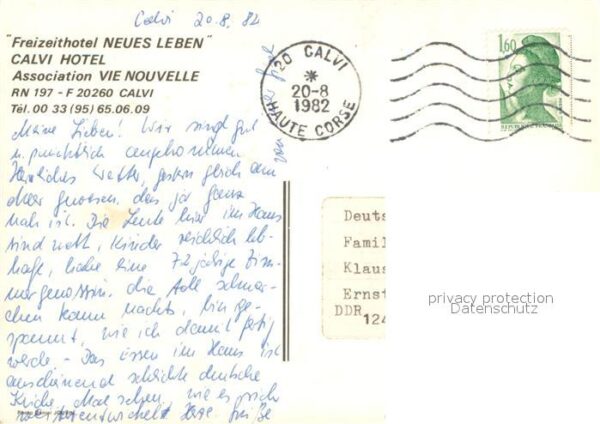 Calvi 20.8.82
"Freizeithotel NEUES LEBEN"
CALVI HOTEL
Association VIE NOUVELLE
RN 197 - F 20260 CALVI
Tél. 00 33 (95) 65.06.09
20 CALVI
20-8
1982
HAUTE CORSE
1,60
Meine Lieben! Wir sind gut
u. pünktlich angekommen
Herrliches Wetter, gestern gleich am
Meer gewesen, das ja ganz
nah ist. Die Leute hier im Haus
sind nett, Kinder reichlich leb-
haft, habe eine 72 jährige Zim-
mergenossin, die toll schnar-
chen kann nachts, bin ge-
spannt, wie ich damit fertig
werde - Das Essen im Haus ist
anscheinend schlichte deutsche
Küche, Mal sehen, wie es sich
weiterentwickelt Herzl. Grüße
Deuts
Famil
Klaus
Ernst
DDR
124
privacy protection
Datenschutz